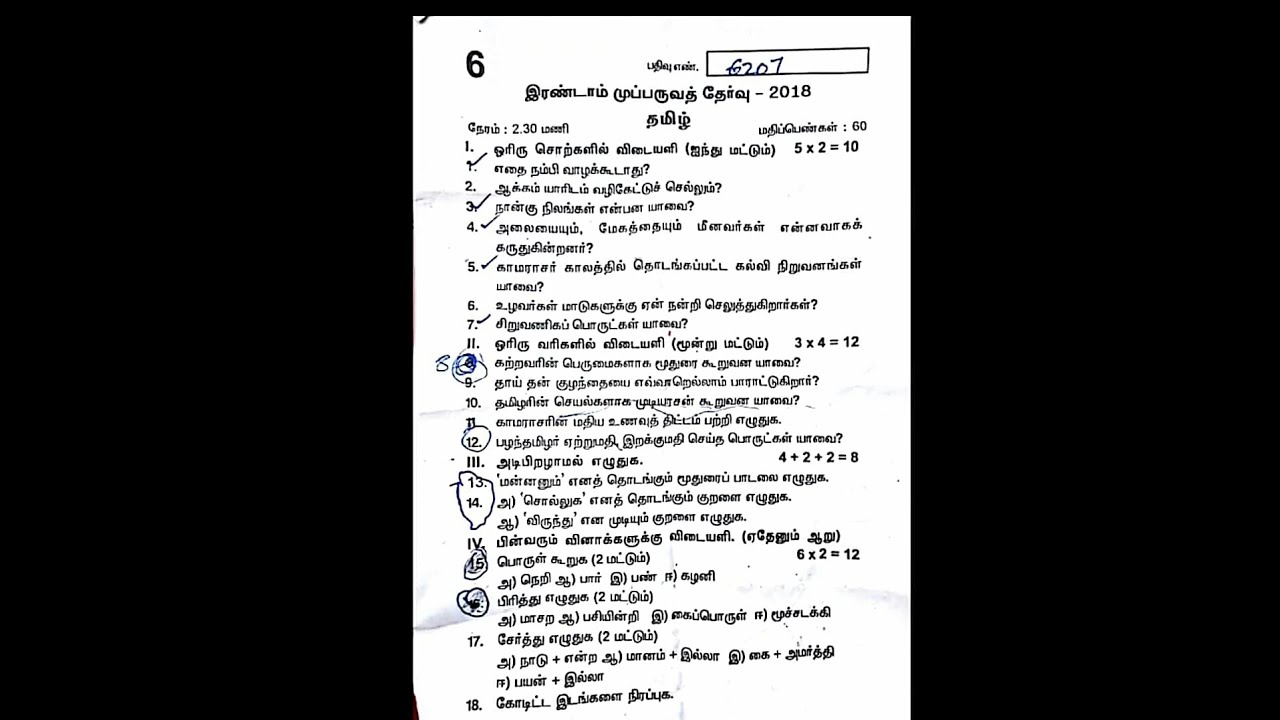 6
பதிவு எண். 6207
இரண்டாம் முப்பருவத் தேர்வு – 2018
தமிழ்
நேரம் : 2.30 மணி மதிப்பெண்கள் : 60
I. ஓரிரு சொற்களில் விடையளி (ஐந்து மட்டும்) 5 x 2 = 10
1. எதை நம்பி வாழக்கூடாது?
2. ஆக்கம் யாரிடம் வழிகேட்டுச் செல்லும்?
3. நான்கு நிலங்கள் என்பன யாவை?
4. அலையையும், மேகத்தையும் மீனவர்கள் என்னவாகக்
கருதுகின்றனர்?
5. காமராசர் காலத்தில் தொடங்கப்பட்ட கல்வி நிறுவனங்கள்
யாவை?
6. உழவர்கள் மாடுகளுக்கு ஏன் நன்றி செலுத்துகிறார்கள்?
7. சிறுவணிகப் பொருட்கள் யாவை?
II. ஓரிரு வரிகளில் விடையளி (மூன்று மட்டும்) 3 x 4 = 12
8 கற்றவரின் பெருமைகளாக மூதுரை கூறுவன யாவை?
9. தாய் தன் குழந்தையை எவ்வாறெல்லாம் பாராட்டுகிறார்?
10. தமிழரின் செயல்களாக முடியரசன் கூறுவன யாவை?
11 காமராசரின் மதிய உணவுத் திட்டம் பற்றி எழுதுக.
12. பழந்தமிழர் ஏற்றுமதி, இறக்குமதி செய்த பொருட்கள் யாவை?
III. அடிபிறழாமல் எழுதுக. 4 + 2 + 2 = 8
13. 'மன்னனும்' எனத் தொடங்கும் மூதுரைப் பாடலை எழுதுக.
14. அ) 'சொல்லுக' எனத் தொடங்கும் குறளை எழுதுக.
ஆ) 'விருந்து' என முடியும் குறளை எழுதுக.
IV. பின்வரும் வினாக்களுக்கு விடையளி. (ஏதேனும் ஆறு)
6 x 2 = 12
15 பொருள் கூறுக (2 மட்டும்)
அ) நெறி ஆ) பார் இ) பண் ஈ) கழனி
பிரித்து எழுதுக (2 மட்டும்)
அ) மாசற ஆ) பசியின்றி இ) கைப்பொருள் ஈ) மூச்சடக்கி
17. சேர்த்து எழுதுக (2 மட்டும்)
அ) நாடு + என்ற ஆ) மானம் + இல்லா இ) கை + அமர்த்தி
ஈ) பயன் + இல்லா
18. கோடிட்ட இடங்களை நிரப்புக.